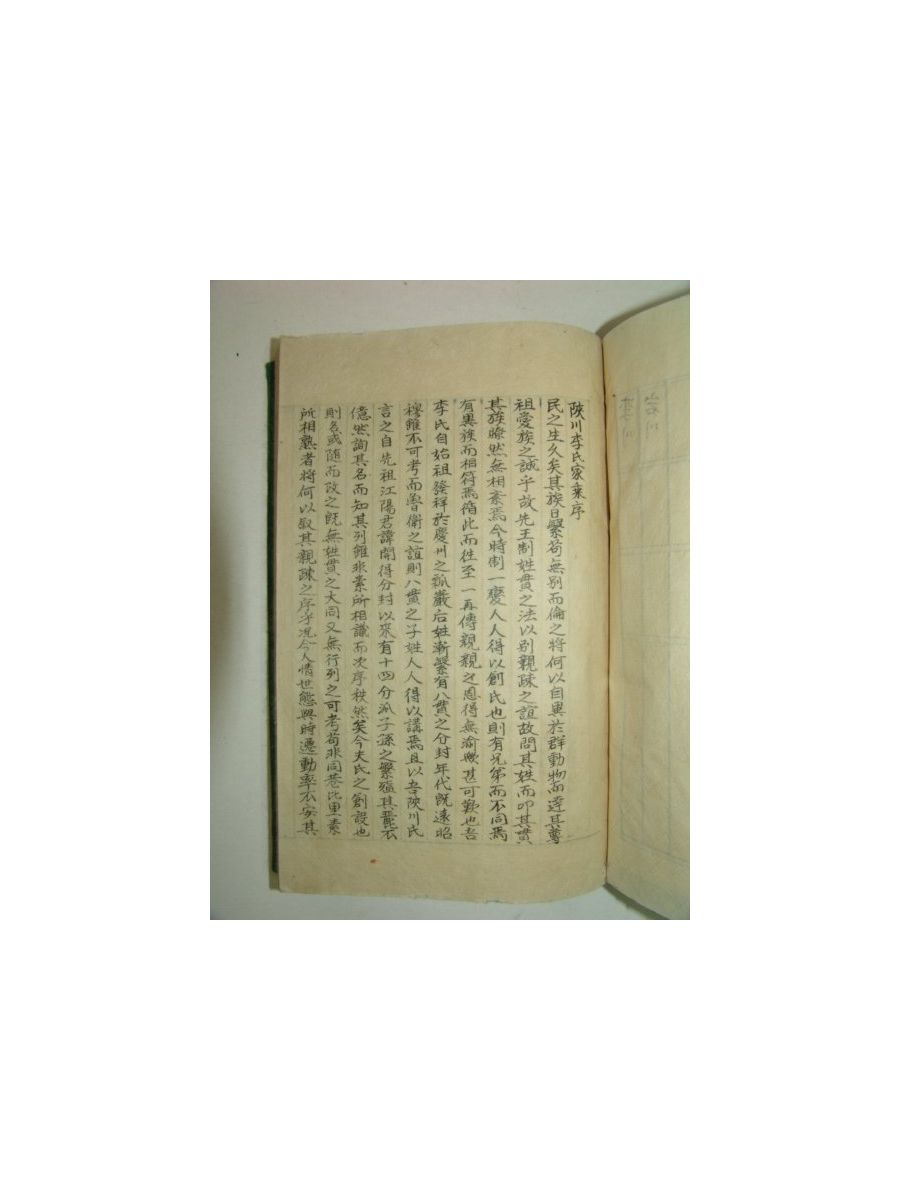 陜川李氏家乗序
民之生久矣其族日繁苟無別而倫之將何以自異於群動物而達其尊
祖愛族之誠乎故先王制姓貫之法以別親疎之誼故問其姓而叩其貫
其族瞭然無相紊焉今時制一變人人得以創氏也則有兄弟而不同焉
有異族而相符焉循此而往至一再傳親親之恩得無渝歟甚可歎也吾
李氏自始祖發祥於慶州之瓢巖后姓漸繁有八貫之分封年代旣遠昭
穆雖不可考而魯衛之誼則八貫之子姓人人得以講焉且以吾陜川氏
言之自先祖江陽君諱開得分封以來有十四分派子孫之繁殖其麗不
億然詢其名而知其列雖非素所相識而次序秩然矣今夫氏之創設也
則名或隨而改之旣無姓貫之大同又無行列之可考苟非同巷比里素
所相熟者將何以敍其親疎之序乎况今人情世態與時遷動率不安其